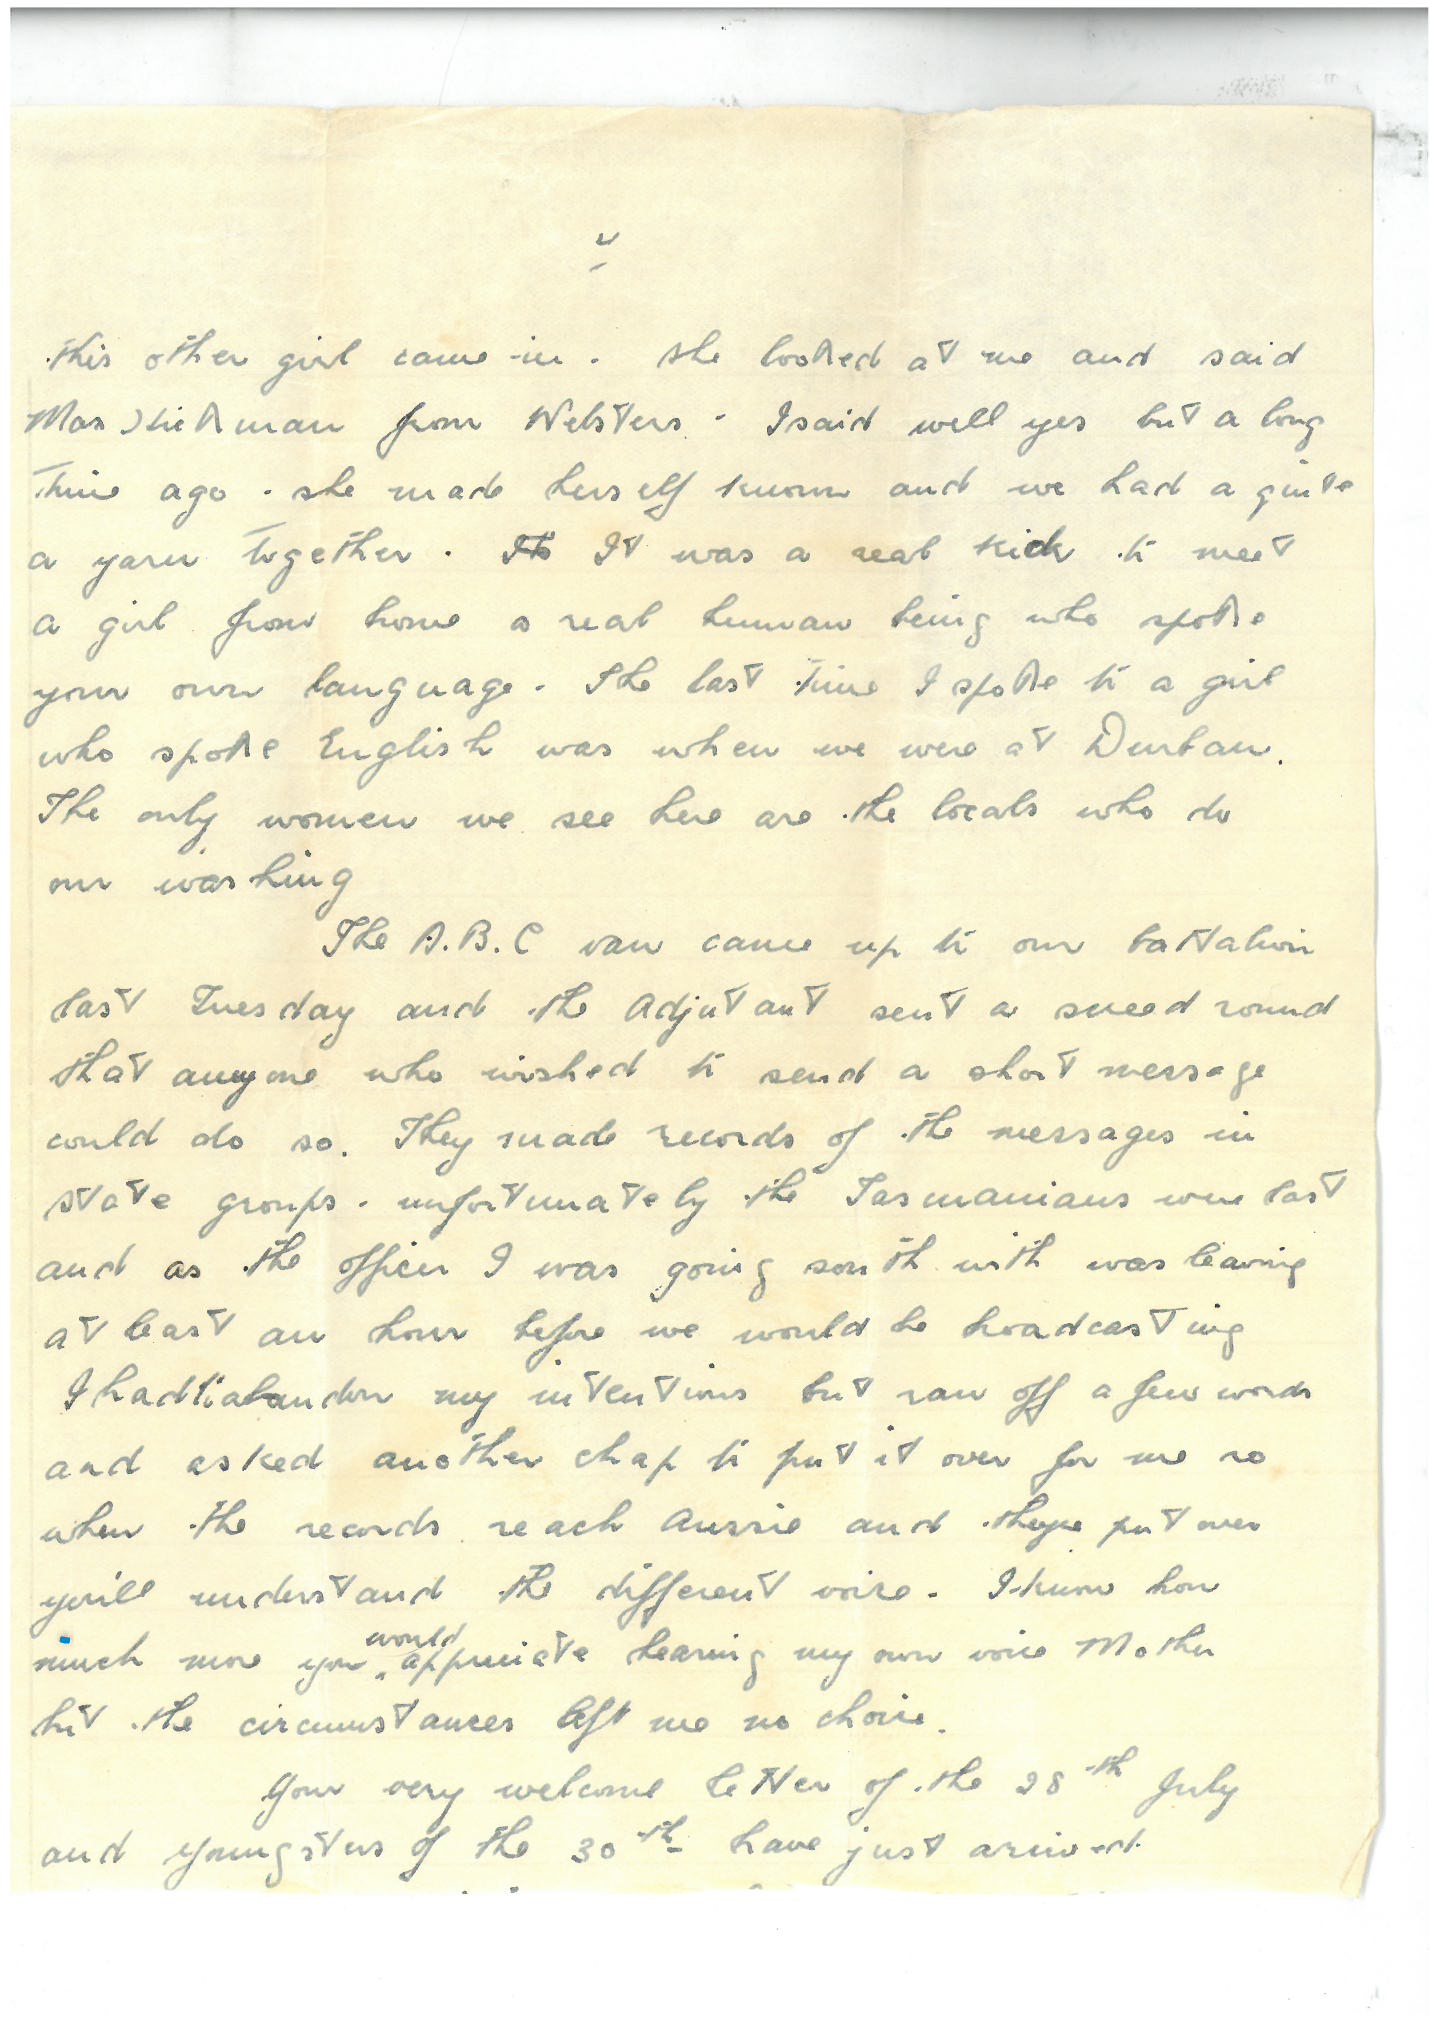 this other girl came in. She looked at me and said
Max Hickman from Websters. I said well yes but a long
time ago. she made herself known and we had a quite
a yarn together. Its It was a real kick to meet
a girl from home a real human being who spoke
your own language. The last time I spoke to a girl
who spoke English was when we were at Durban.
The only women we see here are the locals who do
our washing
The A.B.C van came up to our battalion
last Tuesday and the Adjutant sent a screed round
that anyone who wished to send a short message
could do so. They made records of the messages in
state groups. unfortunately the Tasmanians were last
and as the officer I was going south with was leaving
at least an hour before we would be broadcasting
I had to abandon my intentions but ran off a few words
and asked another chap to put it over for me so
when the records reach Aussie and they're put over
you'll understand the different voice. I know how
much more you would appreciate hearing my own voice Mother
but the circumstances left me no choice.
Your very welcome letter of the 28th July
and youngsters of the 30th have just arrived